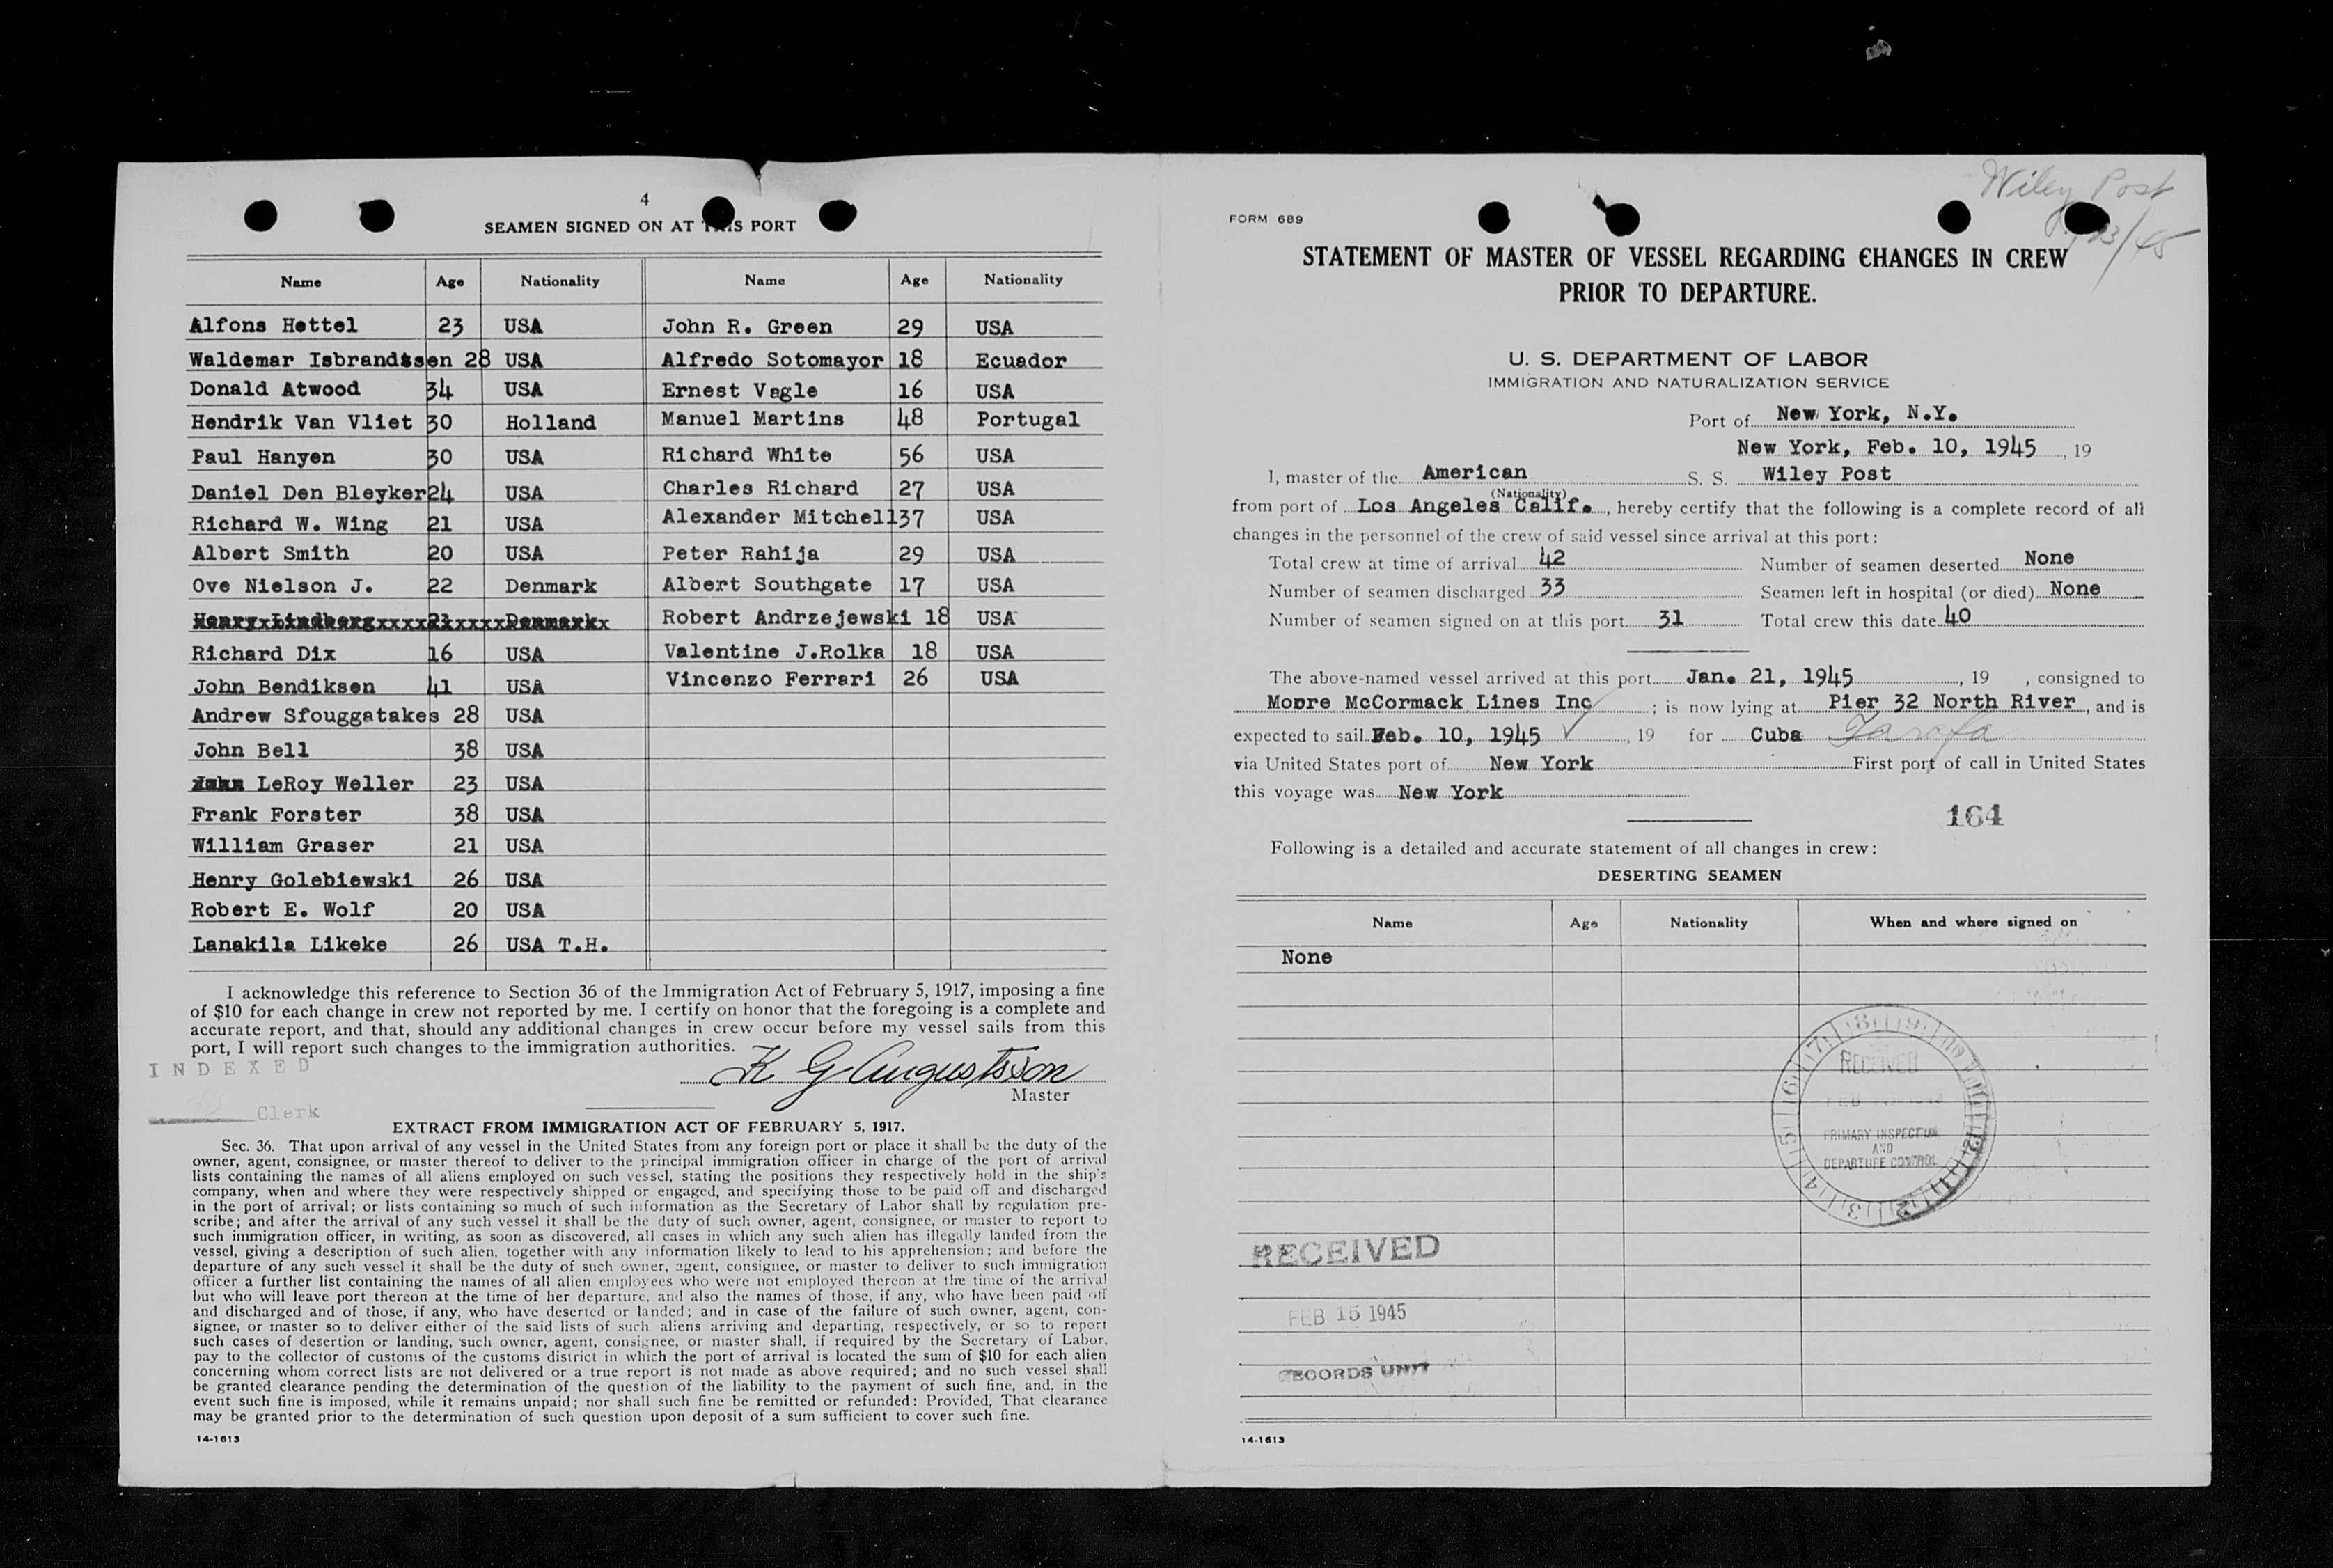 4
SEAMEN SIGNED ON AT THIS PORT
Name Age Nationality Name Age Nationality
Alfons Hettel 23 USA John R. Green 29 USA
Waldemar Isbrandtsen 28 USA Alfredo Sotomayor 18 Ecuador
Donald Atwood 34 USA Ernest Vagle 16 USA
Hendrik Van Vliet 30 Holland Manuel Martins 48 Portugal
Paul Hanyen 30 USA Richard White 56 USA
Daniel Den Bleyker 24 USA Charles Richard 27 USA
Richard W. Wing 21 USA Alexander Mitchell 37 USA
Albert Smith 20 USA Peter Rahija 29 USA
Ove Nielson J. 22 Denmark Albert Southgate 17 USA
Henry Lindberg 21 Denmark Robert Andrzejewski 18 USA
Richard Dix 16 USA Valentine J.Rolka 18 USA
John Bendiksen 41 USA Vincenzo Ferrari 26 USA
Andrew Sfouggatakes 28 USA
John Bell 38 USA
LeRoy Weller 23 USA
Frank Forster 38 USA
William Graser 21 USA
Henry Golebiewski 26 USA
Robert E. Wolf 20 USA
Lanakila Likeke 26 USA T.H.
I acknowledge this reference to Section 36 of the Immigration Act of February 5, 1917, imposing a fine
of $10 for each change in crew not reported by me. I certify on honor that the foregoing is a complete and
accurate report, and that, should any additional changes in crew occur before my vessel sails from this
port, I will report such changes to the immigration authorities.
INDEXED
K G Augustsson
Master
Clerk
EXTRACT FROM IMMIGRATION ACT OF FEBRUARY 5, 1917.
Sec. 36. That upon arrival of any vessel in the United States from any foreign port or place it shall be the duty of the
owner, agent, consignee, or master thereof to deliver to the principal immigration officer in charge of the port of arrival
lists containing the names of all aliens employed on such vessel, stating the positions they respectively hold in the ship's
company, when and where they were respectively shipped or engaged, and specifying those to be paid off and discharged
in the port of arrival; or lists containing so much of such information as the Secretary of Labor shall by regulation pre-
scribe; and after the arrival of any such vessel it shall be the duty of such owner, agent, consignee, or master to report to
such immigration officer, in writing, as soon as discovered, all cases in which any such alien has illegally landed from the
vessel, giving a description of such alien, together with any information likely to lead to his apprehension; and before the
departure of any such vessel it shall be the duty of such owner, agent, consignee, or master to deliver to such immigration
officer a further list containing the names of all alien employees who were not employed thereon at the time of the arrival
but who will leave port thereon at the time of her departure, and also the names of those, if any, who have been paid off
and discharged and of those, if any, who have deserted or landed; and in case of the failure of such owner, agent, con-
signee, or master so to deliver either of the said lists of such aliens arriving and departing, respectively, or so to report
such cases of desertion or landing, such owner, agent, consignee, or master shall, if required by the Secretary of Labor,
pay to the collector of customs of the customs district in which the port of arrival is located the sum of $10 for each alien
concerning whom correct lists are not delivered or a true report is not made as above required; and no such vessel shall
be granted clearance pending the determination of the question of the liability to the payment of such fine, and, in the
event such fine is imposed, while it remains unpaid; nor shall such fine be remitted or refunded: Provided, That clearance
may be granted prior to the determination of such question upon deposit of a sum sufficient to cover such fine.
14-1613
Wiley Post
FORM 689
STATEMENT OF MASTER OF VESSEL REGARDING CHANGES IN CREW
PRIOR TO DEPARTURE.
U. S. DEPARTMENT OF LABOR
IMMIGRATION AND NATURALIZATION SERVICE
Port of New York, N.Y.
New York, Feb. 10, 1945, 19
I, master of the American S. S. Wiley Post
(Nationality)
from port of Los Angeles Calif., hereby certify that the following is a complete record of all
changes in the personnel of the crew of said vessel since arrival at this port:
Total crew at time of arrival 42 Number of seamen deserted None
Number of seamen discharged 33 Seamen left in hospital (or died) None
Number of seamen signed on at this port 31 Total crew this date 40
The above-named vessel arrived at this port Jan. 21, 1945, 19 , consigned to
Moore McCormack Lines Inc ; is now lying at Pier 32 North River, and is
expected to sail Feb. 10, 1945 ✓, 19 for Cuba Tarafa
via United States port of New York First port of call in United States
this voyage was New York
164
Following is a detailed and accurate statement of all changes in crew:
DESERTING SEAMEN
Name Age Nationality When and where signed on
None
RECEIVED
PRIMARY INSPECTION
AND
DEPARTURE CONTROL
RECEIVED
FEB 15 1945
RECORDS UNIT
14-1613